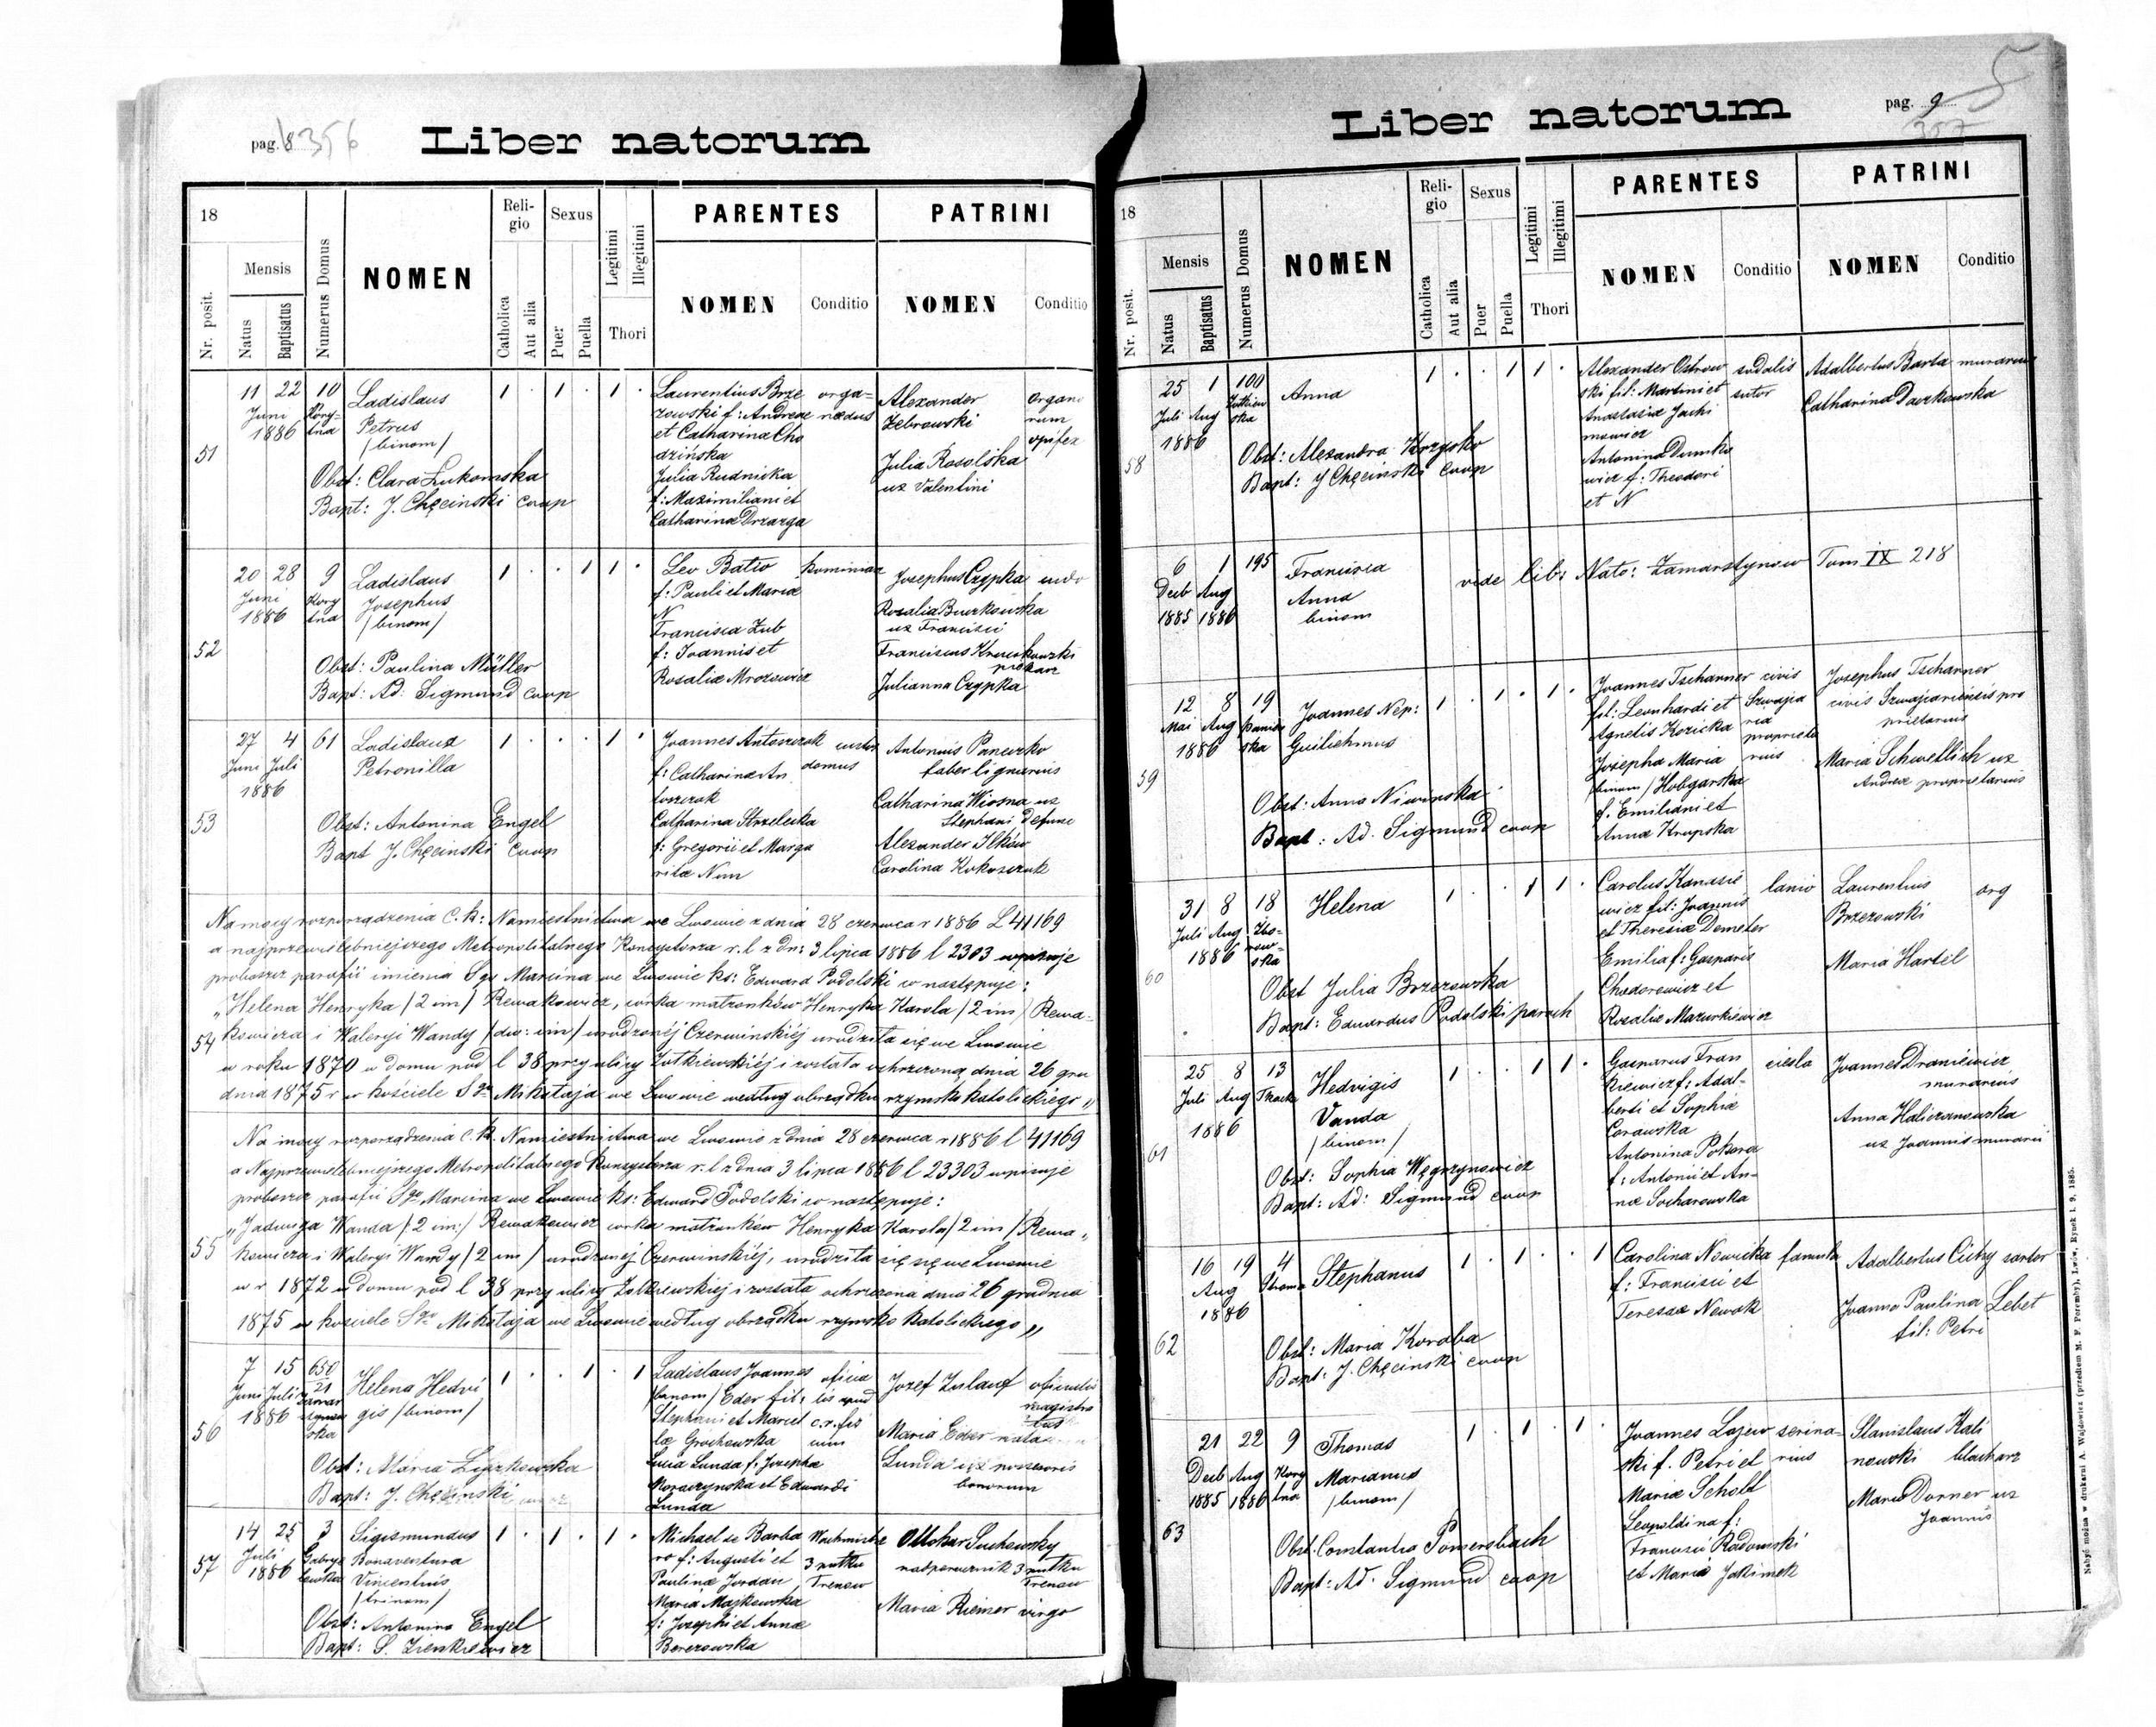 pag. 8 356
Liber natorum
18
Mensis
Nr. posit.
Natus
Baptisatus
Numerus Domus
NOMEN
Religio
Catholica
Aut alia
Sexus
Puer
Puella
Legitimi
Illegitimi
Thori
PARENTES
NOMEN
Conditio
PATRINI
NOMEN
Conditio
51
11 22 10
Juni
1886
Ladislaus
Petrus
/binom/
1 . 1 . 1 .
Obst: Clara Łukomska
Bapt: J. Chęcinski coop
Laurentius Brze
zowski f: Andreae
et Catharina Cho
dzińska
Julia Rudnicka
f: Maximiliani et
Catharina Drzazga
orga-
naedus
Alexander
Żebrowski
Julia Rosolska
ux Valentini
Organo
rum
opifex
52
20 28 9
Juni
1886
Ladislaus
Josephus
/binom/
1 . . 1 1 .
Obst: Paulina Müller
Bapt: Ad: Sigmund coop
Leo Batio kominiar
f: Pauli et Mariae
N
Francisca Zub
f: Joannis et
Rosaliae Mrozowicz
Josephus Czypka
Rosalia Burkowska
ux Francisci
Julianna Czypka
53
27 4 61
Juni Juli
1886
Ladislaua
Petronilla
1 . . 1 .
Obst: Antonina Engel
Bapt J. Chęcinski coop
Joannes Antoszczak custos
domus
f: Catharinae An
toszczak
Catharina Strzelecka
f: Gregorii et Marga
ritae Num
Antonius Paneczko
faber lignarius
Catharina Wiosna ux
Stephani defunc
Alexander Ilków
Carolina Kokoszczak
54
Na mocy rozporządzenia C. k: Namiestnictwa we Lwowie z dnia 28 czerwca r 1886 L 41169
a najprzewielebniejszego Metropolitalnego Konsystorza r. l z dn: 3 lipca 1886 l 2303 wpisuje
proboszcz parafii imienia Sgo Marcina we Lwowie ks: Edward Podolski co następuje:
„Helena Henryka /2 im/ Rewakowicz, corka małżonków Henryka Karola /2 im/ Rewa-
kowicza i Waleryi Wandy /dw: im/ urodzonéj Czerwińskiéj urodziła się we Lwowie
w roku 1870 w domu pod l 38 przy ulicy Żołkiewskiéj i została ochrzczoną dnia 26 gru
dnia 1875 r w kościele Sgo Mikołaja we Lwowie według obrządku rzymsko katolickiego„
55
Na mocy rozporządzenia C. k. Namiestnictwa we Lwowie z dnia 28 czerwca r 1886 l 41169
a Najprzewielebniejszego Metropolitalnego Konsystorza r. l z dnia 3 lipca 1886 l 23303 wpisuje
proboszcz parafii Sgo Marcina we Lwowie ks: Edward Podolski co następuje:
„Jadwiga Wanda /:2 im:/ Rewakowicz corka małżonków Henryka Karola /2 im/ Rewa„
kowicza i Waleryi Wandy /2 im/ urodzonej Czerwinskiéj, urodziła się się we Lwowie
w r 1872 w domu pod l 38 przy ulicy Żołkiewskiej i została ochrzczona dnia 26 grudnia
1875 w kosciele Sgo Mikołaja we Lwowie według obrządku rzymsko katolickiego„
56
7 15 650
21
Juni Juli
1886
Helena Hedvi
gis /binom/
1 . . 1 . 1
Obst: Maria Lyszkowska
Bapt: J. Chęcinski
Ladislaus Joannes
/binom/ Eder fil:
Stephani et Marcel
lae Grochowska
Lucia Lunda f: Josepha
et Eduardi
Lunda
oficia
lis apud
c. r. fis
cum
Jozef Zulauf
Maria Eder nata
Lunda ux possesoris
bonorum
oficialis
magistra
tus
57
14 25 3
Juli
1886
Sigismundus
Bonaventura
Vincentius
/trinom/
1 . 1 . 1 .
Obst: Antonina Engel
Bapt: S. Zienkiewicz
Michael de Barba
ro f: Augusti et
Paulinae Jordan
Maria Majkowska
f: Josephi et Annae
Berezowska
Wachmistrz
3 pułku
Trenow
Ottokar Suchowsky
nadporucznik 3 pułku
Trenow
Maria Riemer virgo
pag. 9
357
5
Liber natorum
18
Mensis
Nr. posit.
Natus
Baptisatus
Numerus Domus
NOMEN
Religio
Catholica
Aut alia
Sexus
Puer
Puella
Legitimi
Illegitimi
Thori
PARENTES
NOMEN
Conditio
PATRINI
NOMEN
Conditio
58
25 1 100
Juli Aug
1886
Anna
1 . . 1 1 .
Obst: Alexandra Krzysko
Bapt: J Chęcinski coop
Alexander Ostrow
ski fil: Martini et
Anastasia Jachi
mowicz
Antonina Dumko
wicz f: Theodori
et N
sodalis
sutor
Adalbertus Barta murarius
Catharina Daczkowska
6 1 195
Decb Aug
1885 1886
Francisca
Anna
binom
vide lib: Nato: Zamarstynow Tom IX 218
59
12 8 19
Mai Aug
1886
Joannes Nep:
Guilielmus
1 . 1 . 1 .
Obst: Anna Niwinska
Bapt: Ad. Sigmund coop
Joannes Tscharner civis
fil: Leonhardi et
Agnetis Kozicka
Josepha Maria
/binom/ Hobgarska
f. Emiliani et
Anna Krupska
Szwajca
ria
proprieta
rius
Josephus Tscharner
civis Szwajcariensis pro
prietarius
Maria Schwetlich ux
Andreae proprietarius
60
31 8 18
Juli Aug
1886
Helena
1 . . 1 1 .
Obst Julia Brzezowska
Bapt: Eduardus Podolski paroch
Carolus Kanasie
wicz fil: Joannis
et Theresiae Demeter
Emilia f: Gasparis
Chodorowicz et
Rosaliae Mazurkiewicz
lanio
Laurentius
Brzezowski
org
Maria Hartel
61
25 8 13
Juli Aug
1886
Hedvigis
Vanda
/binom/
1 . . 1 1 .
Obst: Sophia Węgrzynowicz
Bapt: Ad: Sigmund coop
Gasparus Fran
kiewicz f: Adal-
berti et Sophiae
Cerawska
Antonina Pokora
f: Antonii et An-
nae Socharowska
ciesla
Joannes Draniewicz
murarius
Anna Haliczanowska
ux Joannis murarii
62
16 19 4
Aug
1886
Stephanus
1 . 1 . . 1
Obst: Maria Kordba
Bapt: J. Chęcinski coop
Carolina Nowicka famula
f: Francisci et
Teresae Nowak
Adalbertus Cichy sartor
Joanna Paulina Lebet
fil: Petri
63
21 22 9
Decb Aug
1885 1886
Thomas
Marianus
/binom/
1 . 1 . 1 .
Obst. Constantia Pomersbach
Bapt: Ad. Sigmund coop
Joannes Lajew
ski f. Petri et
Mariae Scholt
Leopoldina f:
Francisci Radomski
et Maria Jakimek
serina-
rius
Stanislaus Kali
nowski blacharz
Maria Dorner ux
Joannis
Nabyć można w drukarni A. Wajdowicz (przedtem M. F. Poremby), Lwów, Rynek l. 9. 1885.